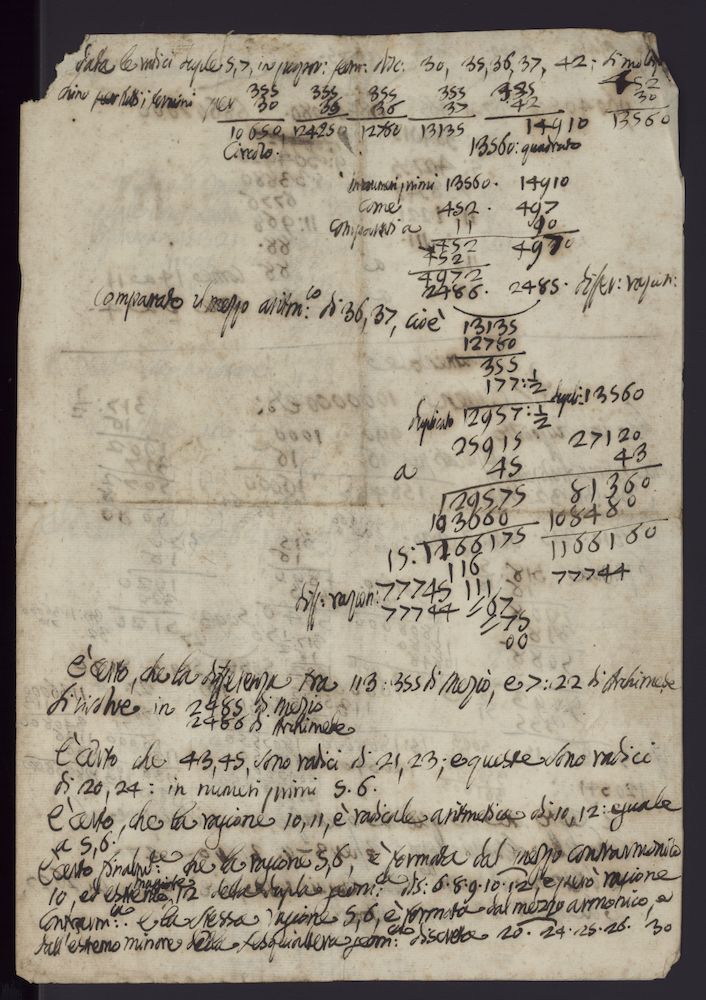 Data le radici duple 5, 7, in propor: geom: disc: 30, 35, 36, 37, 42: di
per 355 355 355 355 355 42
30 35 36 37 42 30
10650, 12425 12780 13135 14910 13560
Circolo. 13560: quadrato
in numeri primi 13560. 14910
Come 452. 497
Comparati a 11 10
452 4970
452
4972
2486. 2485. differ: ragion:
Comparato il mezzo aritm:co di 36, 37, cioè 13135
12780
355
177:½
duplicato 12957:½ dupli: 13560
25915 27120
a 45 43
129575 81360
103660 108480
15: 1166175 1166160
116
diff: ragion: 77745 111 77744
77744 67
75
00
È certo, che la differenza tra 113: 355 di Mezio, e 7: 22 di Archimede
si risolve in 2485 di Mezio
2486 di Archimede
È certo che 43, 45, sono radici di 21, 23; e queste sono radici
di 20, 24: in numeri primi 5. 6.
È certo, che la ragione 10, 11, è radicale aritmetica di 10, 12: eguale
a 5, 6.
È certo finalm:te che la ragione 5, 6, è formata dal mezzo contrarmonico
10, ed estremo maggiore 12 della dupla geom:ca dis: 6. 8. 9. 10. 12, e però ragione
contrarm:ca e la stessa ragione 5, 6, è formata dal mezzo armonico, e
dall'estremo minore della sesquialtera geom:ca discreta 20. 24. 25. 26. 30